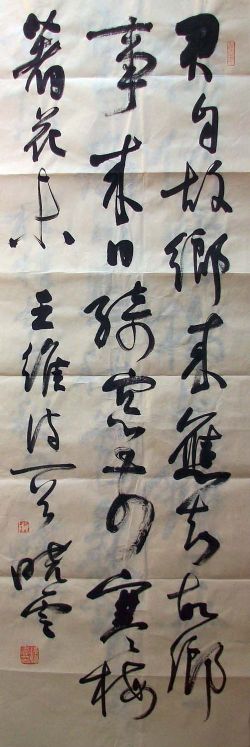 君自故鄉來應知故鄉
事來日綺窗前寒梅
著花未 王維詩一首 曉雲